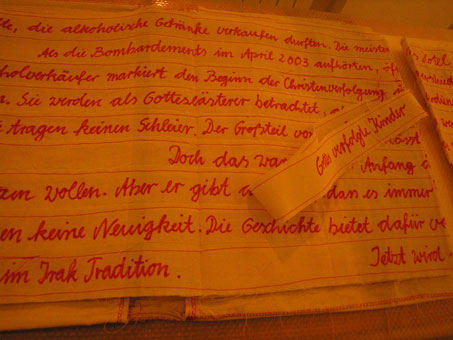 die alkoholische Getränke verkaufen durften. Die meisten
Als die Bombardements im April 2003 aufhörten,
holverkäufer markiert den Beginn der Christenverfolgung
Sie werden als Gotteslästerer betrachtet,
tragen keinen Schleier. Der Großteil
Doch das Anfang
wollen. Aber er gibt dass es immer
keine Neuigkeit. Die Geschichte bietet dafür
Jetzt wird
im Irak Tradition.
Gottes verfolgte Kinder